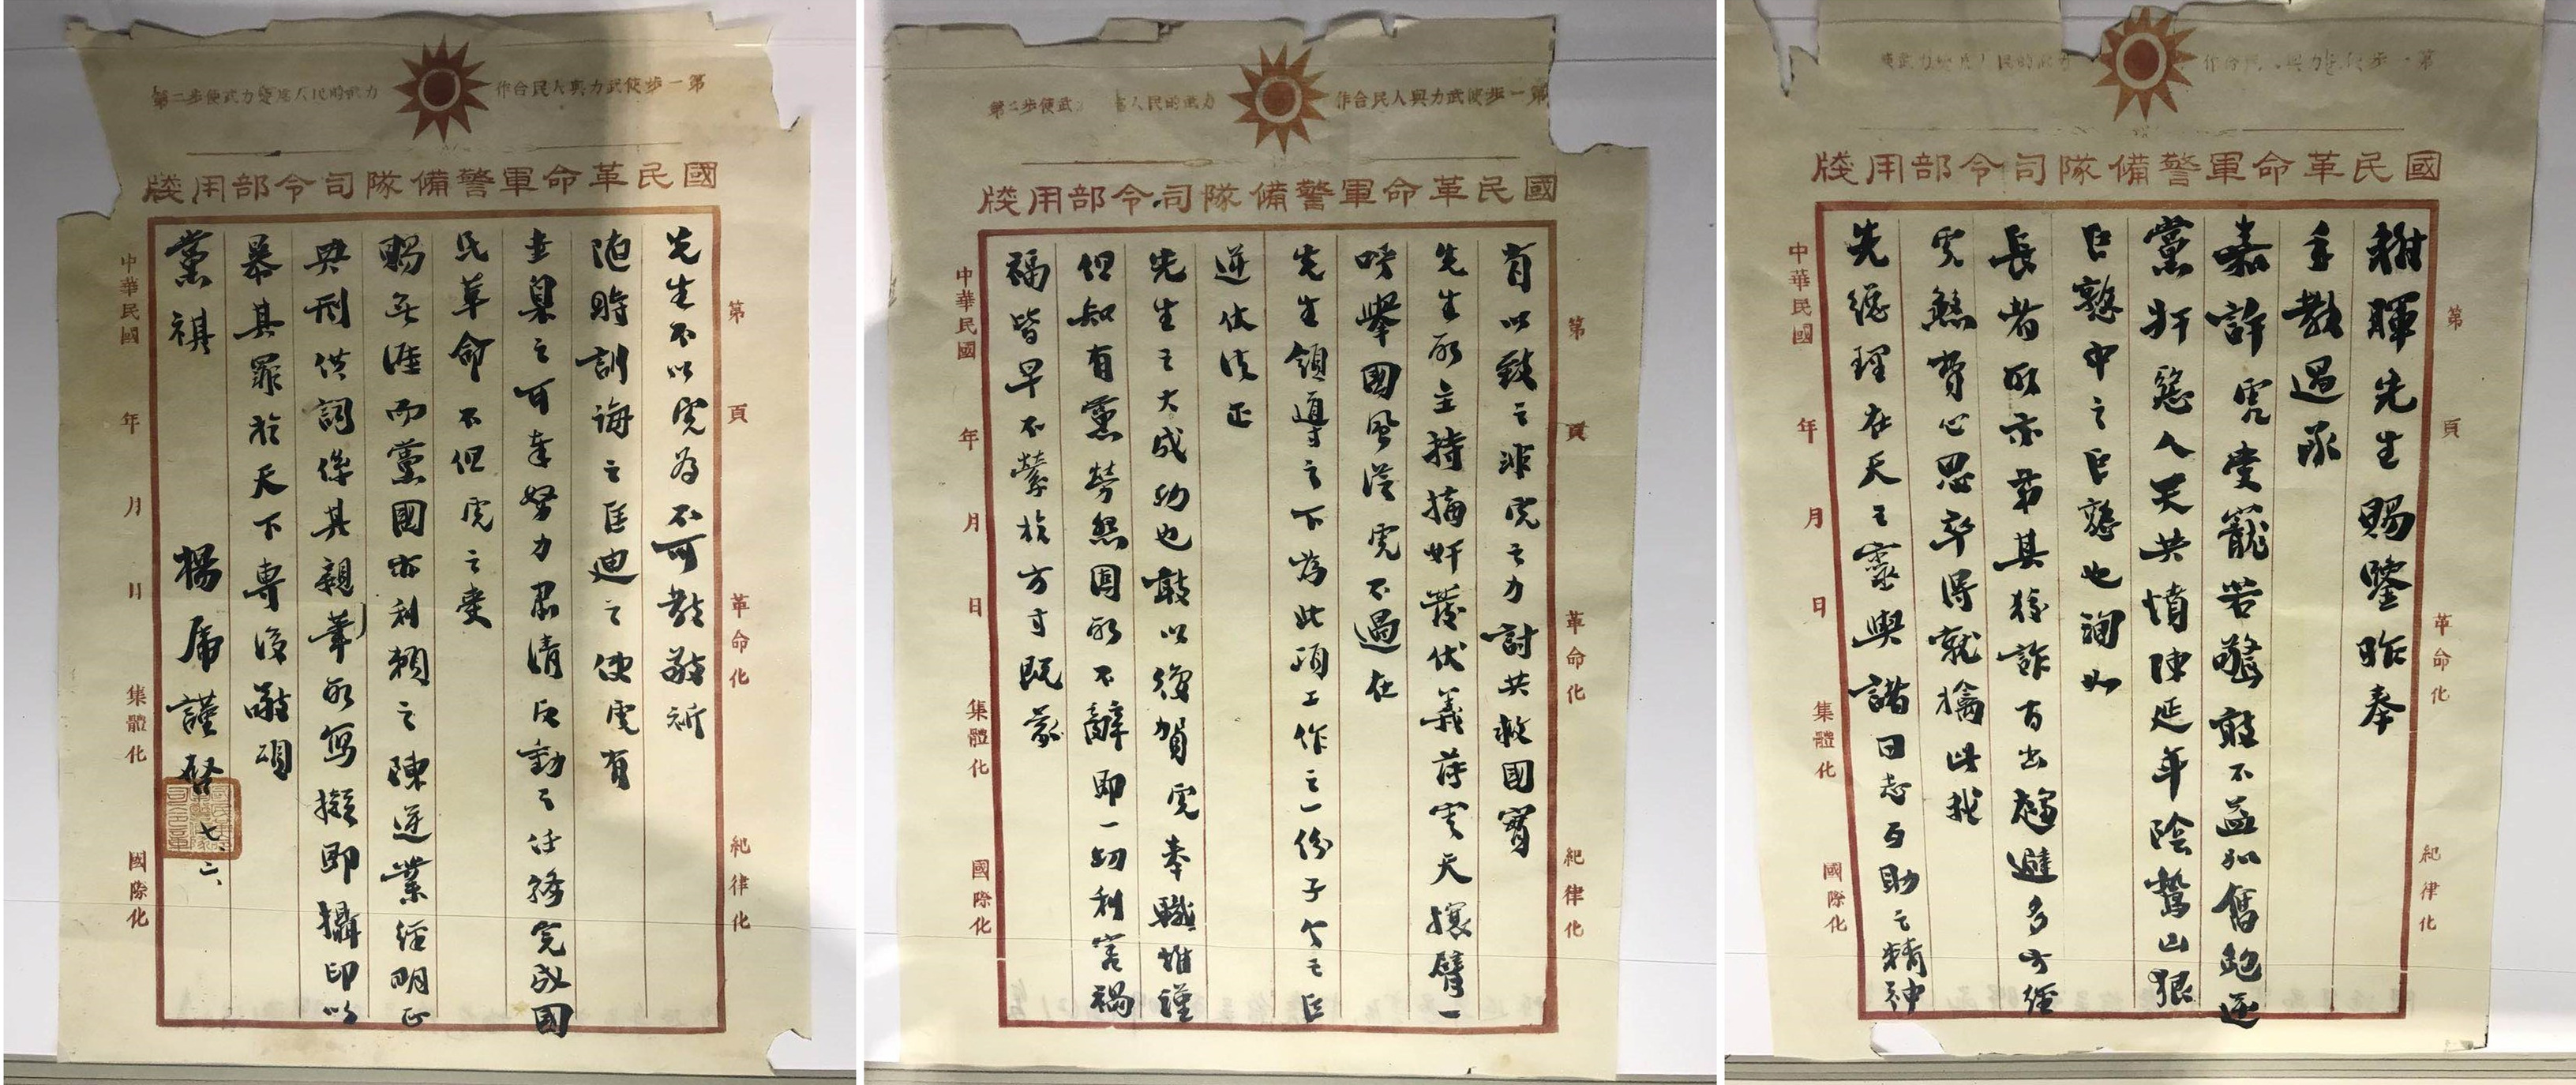 第一步使武力與人民合作
國民革命軍警備隊司令部用牋
第 頁 革命化 紀律化
稚暉先生賜鑒昨奉
手教過承
嘉許虎愛寵若驚敢不益加奮勉逆
黨奸慝人天共憤陳延年陰鷙凶狠
巨憝中之巨憝也洵如
長者所示前其猱詐百出趨避多方經
究煞費心思卒得就擒此我
先總理在天之靈與諸同志互助之精神
中華民國 年 月 日 集體化 國際化
第一步使武力與人民合作
國民革命軍警備隊司令部用牋
第 頁 革命化 紀律化
有以致之非虎之力討共救國實
先生所主持摘奸發伏義薄雲天攘臂一
呼舉國風從虎不過在
先生領導之下為此項工作之一份子今之巨
逆伏法正
先生之大成功也敢以獲賀虎奉職雖謹
但知有黨勞怨固所不辭即一切利害禍
福皆早不縈於方寸既蒙
中華民國 年 月 日 集體化 國際化
第一步使武力與人民合作
第二步使武力變為人民的武力
國民革命軍警備隊司令部用牋
第 頁 革命化 紀律化
先生不以虎為不可教敬祈
隨時訓誨之匡迪之使虎有
圭臬之可奉努力肅清反動之任務完成國
民革命不但虎之愛
賜無涯而黨國亦利賴之陳逆業經明正
典刑供詞係其親筆所寫擬即攝印以
暴其罪於天下專復敬頌
黨祺 楊虎謹啓 七、六、
中華民國 年 月 日 集體化 國際化